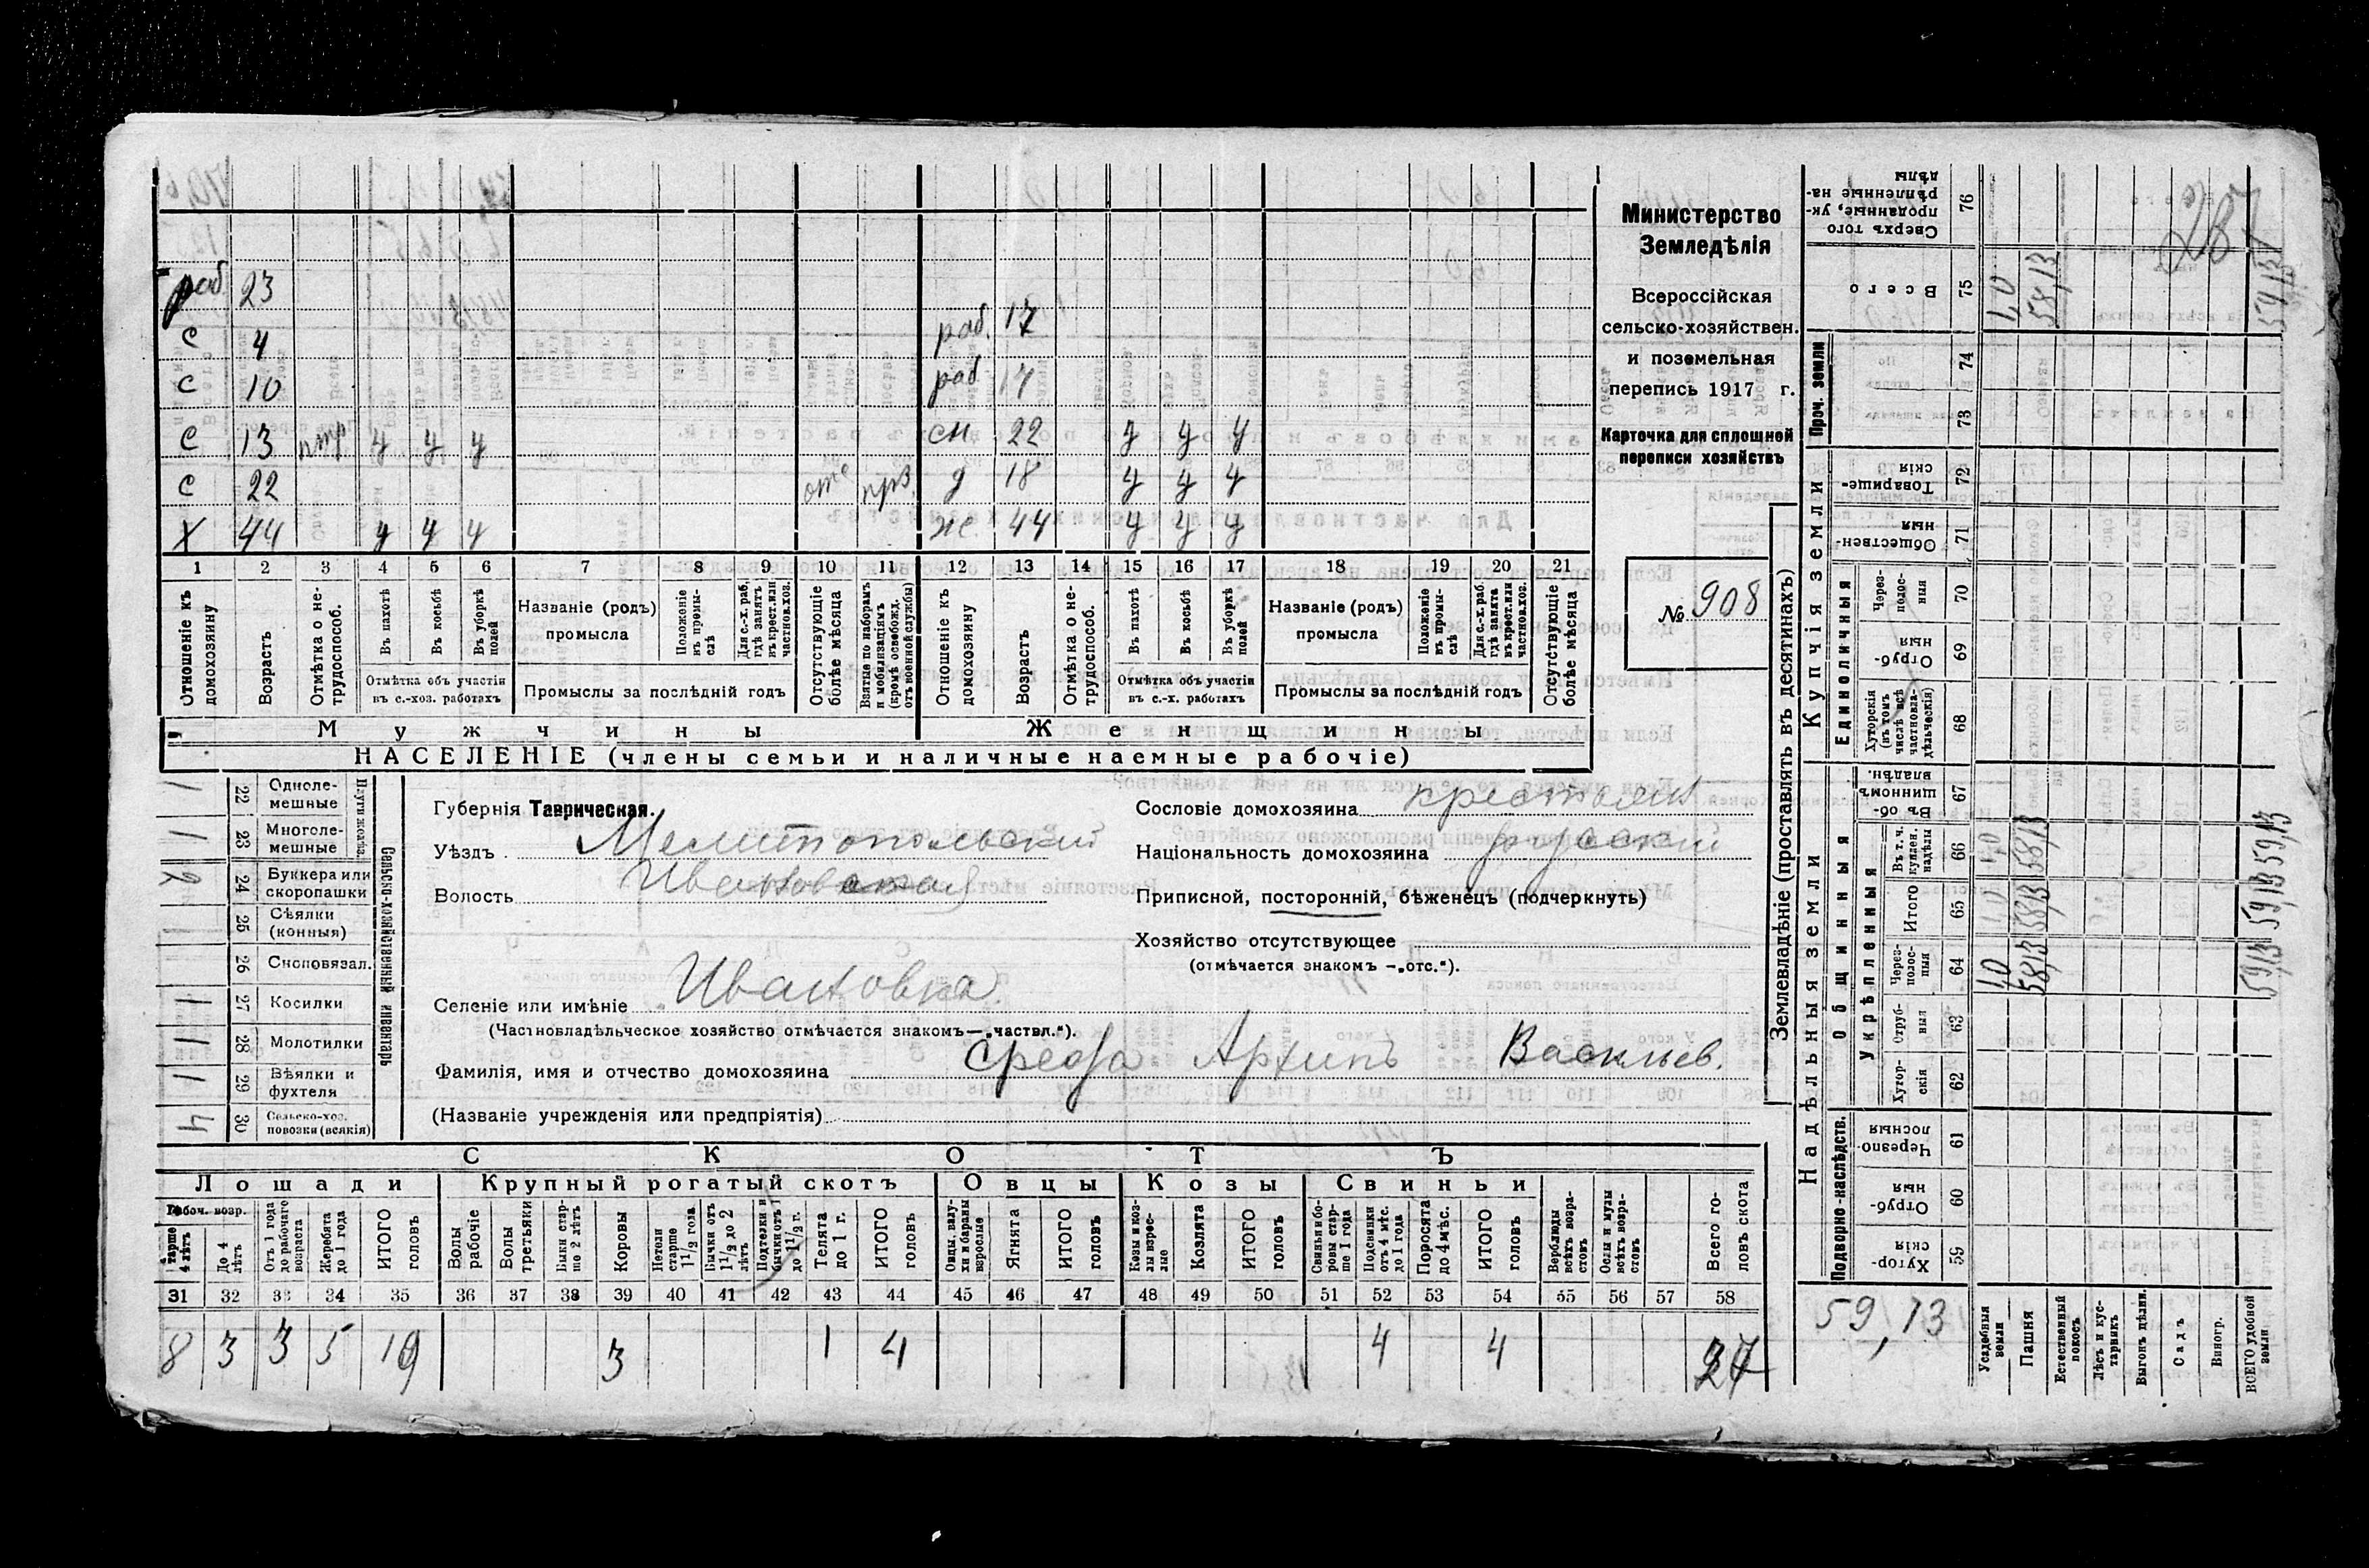 раб. 23
с 4 раб. 17
с 10 раб. 17
с 13 у у у сн. 22 у у у
с 22 отс д 18 у у у
х 44 у у у ж. 44 у у у
1 2 3 4 5 6 7 8 9 10 11 12 13 14 15 16 17 18 19 20 21
Отношеніе къ домохозяину
Возрастъ
Отмѣтка о нетрудоспособ.
Въ пахотѣ
Въ косьбѣ
Въ уборкѣ полей
Отмѣтка объ участіи въ с.-хоз. работахъ
Названіе (родъ) промысла
Положеніе въ промыслѣ
Для с.-х. раб. гдѣ занятъ въ крест. или частновл. хоз.
Промыслы за послѣдній годъ
Отсутствующіе болѣе мѣсяца
Взятые по наборамъ и мобилизаціямъ (кромѣ освобожд. отъ военной службы)
Отношеніе къ домохозяину
Возрастъ
Отмѣтка о нетрудоспособ.
Въ пахотѣ
Въ косьбѣ
Въ уборкѣ полей
Отмѣтка объ участіи въ с.-х. работахъ
Названіе (родъ) промысла
Положеніе въ промыслѣ
Для с.-х. раб. гдѣ занята въ крест. или частновл. хоз.
Промыслы за послѣдній годъ
Отсутствующіе болѣе мѣсяца
Мужчины Женщины
НАСЕЛЕНІЕ (члены семьи и наличные наемные рабочіе)
Министерство
Земледѣлія
Всероссійская
сельско-хозяйствен.
и поземельная
перепись 1917 г.
Карточка для сплошной
переписи хозяйствъ
№ 908
Сельско-хозяйственный инвентарь
Плуги желѣз.
1 22 Однолемешные
1 23 Многолемешные
2 24 Буккера или скоропашки
1 25 Сѣялки (конныя)
26 Сноповязал.
1 27 Косилки
1 28 Молотилки
1 29 Вѣялки и фухтеля
4 30 Сельско-хоз. повозки (всякія)
Губернія Таврическая.
Уѣздъ Мелитопольский
Волость Ивановская
Селеніе или имѣніе Ивановка.
(Частновладѣльческое хозяйство отмѣчается знакомъ—„частвл.“).
Фамилія, имя и отчество домохозяина Среда Архипъ Васильев.
(Названіе учрежденія или предпріятія)
Сословіе домохозяина крестьянин
Національность домохозяина русский
Приписной, посторонній, бѣженецъ (подчеркнуть)
Хозяйство отсутствующее
(отмѣчается знакомъ —„отс.“).
СКОТЪ
Лошади Крупный рогатый скотъ Овцы Козы Свиньи
Рабоч. возр.
Старше 4 лѣтъ
До 4 лѣтъ
Отъ 1 года до рабочаго возраста
Жеребята до 1 года
ИТОГО головъ
Волы рабочіе
Волы третьяки
Быки старше 2 лѣтъ
Коровы
Нетели старше 1 1/2 года
Бычки отъ 1 1/2 до 2 лѣтъ
Подтелки и бычки отъ 1 до 1 1/2 г.
Телята до 1 г.
ИТОГО головъ
Овцы, валухи и бараны взрослые
Ягнята
ИТОГО головъ
Козы и козлы взрослые
Козлята
ИТОГО головъ
Свиньи и боровы старше 1 года
Подсвинки отъ 4 мѣс. до 1 года
Поросята до 4 мѣс.
ИТОГО головъ
Верблюды всѣхъ возрастовъ
Ослы и мулы всѣхъ возрастовъ
Всего головъ скота
31 32 33 34 35 36 37 38 39 40 41 42 43 44 45 46 47 48 49 50 51 52 53 54 55 56 57 58
8 3 3 5 19 3 1 4 4 4 27
Землевладѣніе (проставлять въ десятинахъ)
Надѣльныя земли
Купчія земли
Проч. земли
Подворно-наслѣдств.
Общинныя
Укрѣпленныя
Единоличныя
59 Хуторскія
60 Отрубныя
61 Черезполосныя
62 Хуторскія
63 Отрубныя
64 Черезполосныя
65 Итого
66 Въ т. ч. куплен. надѣлы
67 Въ общинномъ владѣн.
68 Хуторскія (въ томъ числѣ всѣ частновладѣльческія)
69 Отрубныя
70 Черезполосныя
71 Общественныя
72 Товарищескія
73
74
75 Всего
76 Сверхъ того проданные, укрѣпленные надѣлы
Усадебныя земли 1,0 1,0 1,0 1,0
Пашня 58,13 58,13 58,13 58,13
Естественный покосъ
Лѣсъ и кустарникъ
Выгонъ дѣлин.
Садъ
Виногр.
ВСЕГО удобной земли 59,13 59,13 59,13 59,13
59,13
287